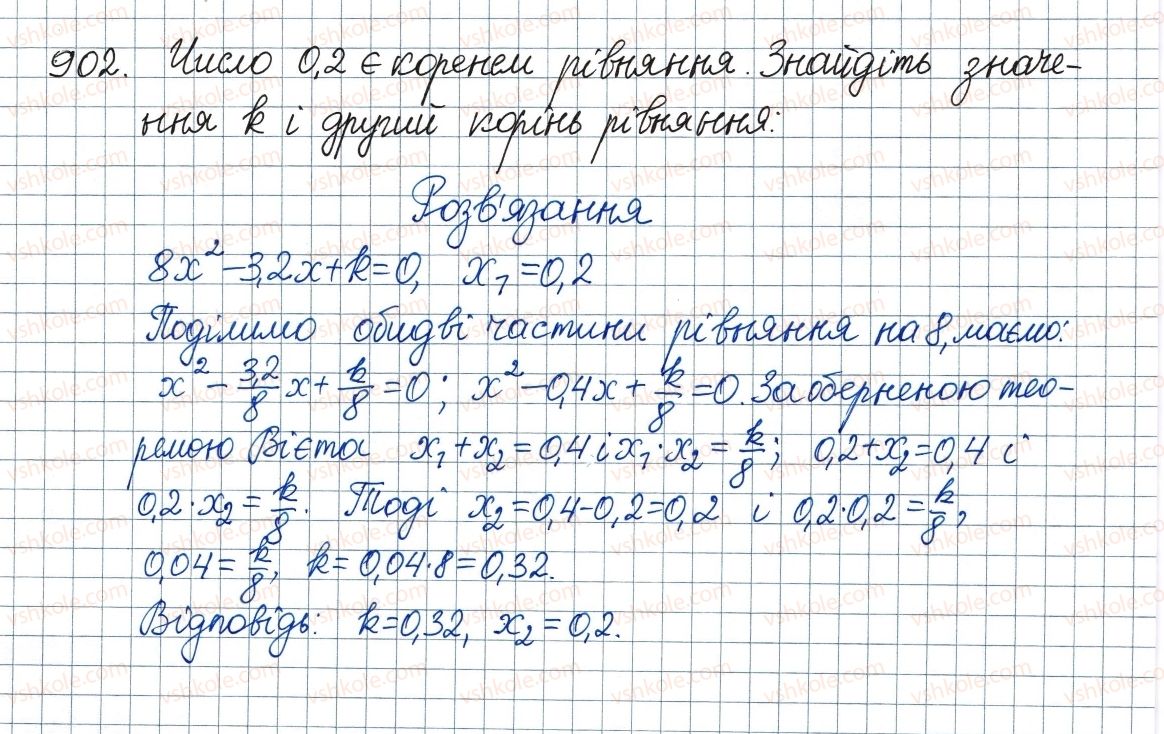 902. Число 0,2 є коренем рівняння. Знайдіть значе-
ння k і другий корінь рівняння:
Розв'язання
8x² - 3,2x + k = 0, x₁ = 0,2
Поділимо обидві частини рівняння на 8, маємо:
x² - 3,2/8 x + k/8 = 0; x² - 0,4x + k/8 = 0. За оберненою тео-
ремою Вієта x₁ + x₂ = 0,4 і x₁ · x₂ = k/8; 0,2 + x₂ = 0,4 і
0,2 · x₂ = k/8. Тоді x₂ = 0,4 - 0,2 = 0,2 і 0,2 · 0,2 = k/8,
0,04 = k/8, k = 0,04 · 8 = 0,32.
Відповідь: k = 0,32, x₂ = 0,2.
vshkole.com